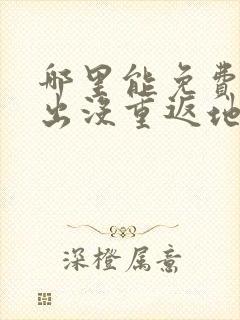 哪里能免费
出没重返地
深橙属意